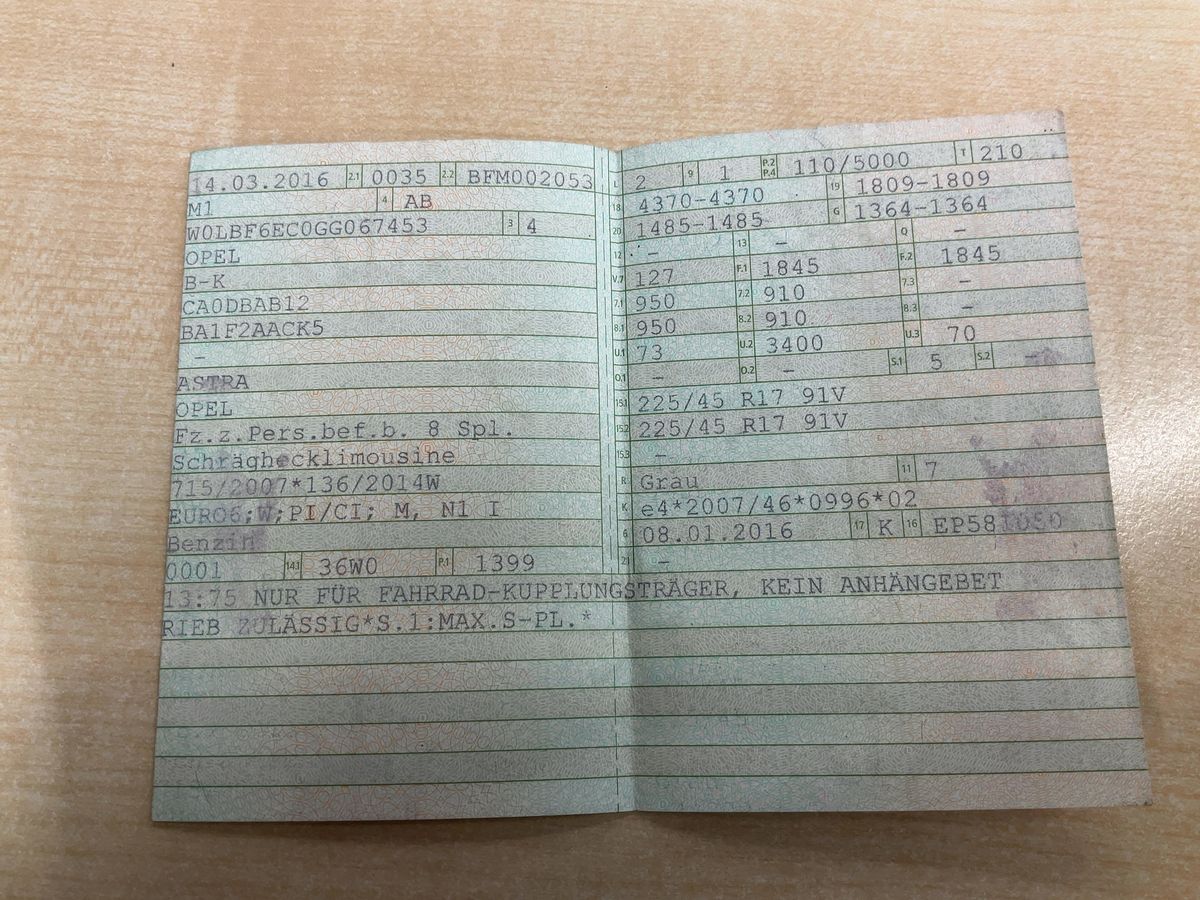 14.03.2016 2.1 0035 2.2 BFM002053
M1 4 AB
W0LBF6EC0GG067453 3 4
OPEL
B-K
CA0DBAB12
BA1F2AACK5
-
ASTRA
OPEL
Fz.z.Pers.bef.b. 8 Spl.
Schräghecklimousine
715/2007*136/2014W
EURO6;W;PI/CI; M, N1 I
Benzin
0001 14.1 36W0 P.1 1399
L 2 9 1 P.2 P.4 110/5000 T 210
18 4370-4370 19 1809-1809
20 1485-1485 G 1364-1364
12 - 13 - Q -
V.7 127 F.1 1845 F.2 1845
7.1 950 7.2 910 7.3 -
8.1 950 8.2 910 8.3 -
U.1 73 U.2 3400 U.3 70
O.1 - O.2 - S.1 5 S.2 -
15.1 225/45 R17 91V
15.2 225/45 R17 91V
15.3 -
R Grau 11 7
K e4*2007/46*0996*02
6 08.01.2016 17 K 16
21 -
13:75 NUR FÜR FAHRRAD-KUPPLUNGSTRÄGER, KEIN ANHÄNGEBET
RIEB ZULÄSSIG*S.1:MAX.S-PL.*